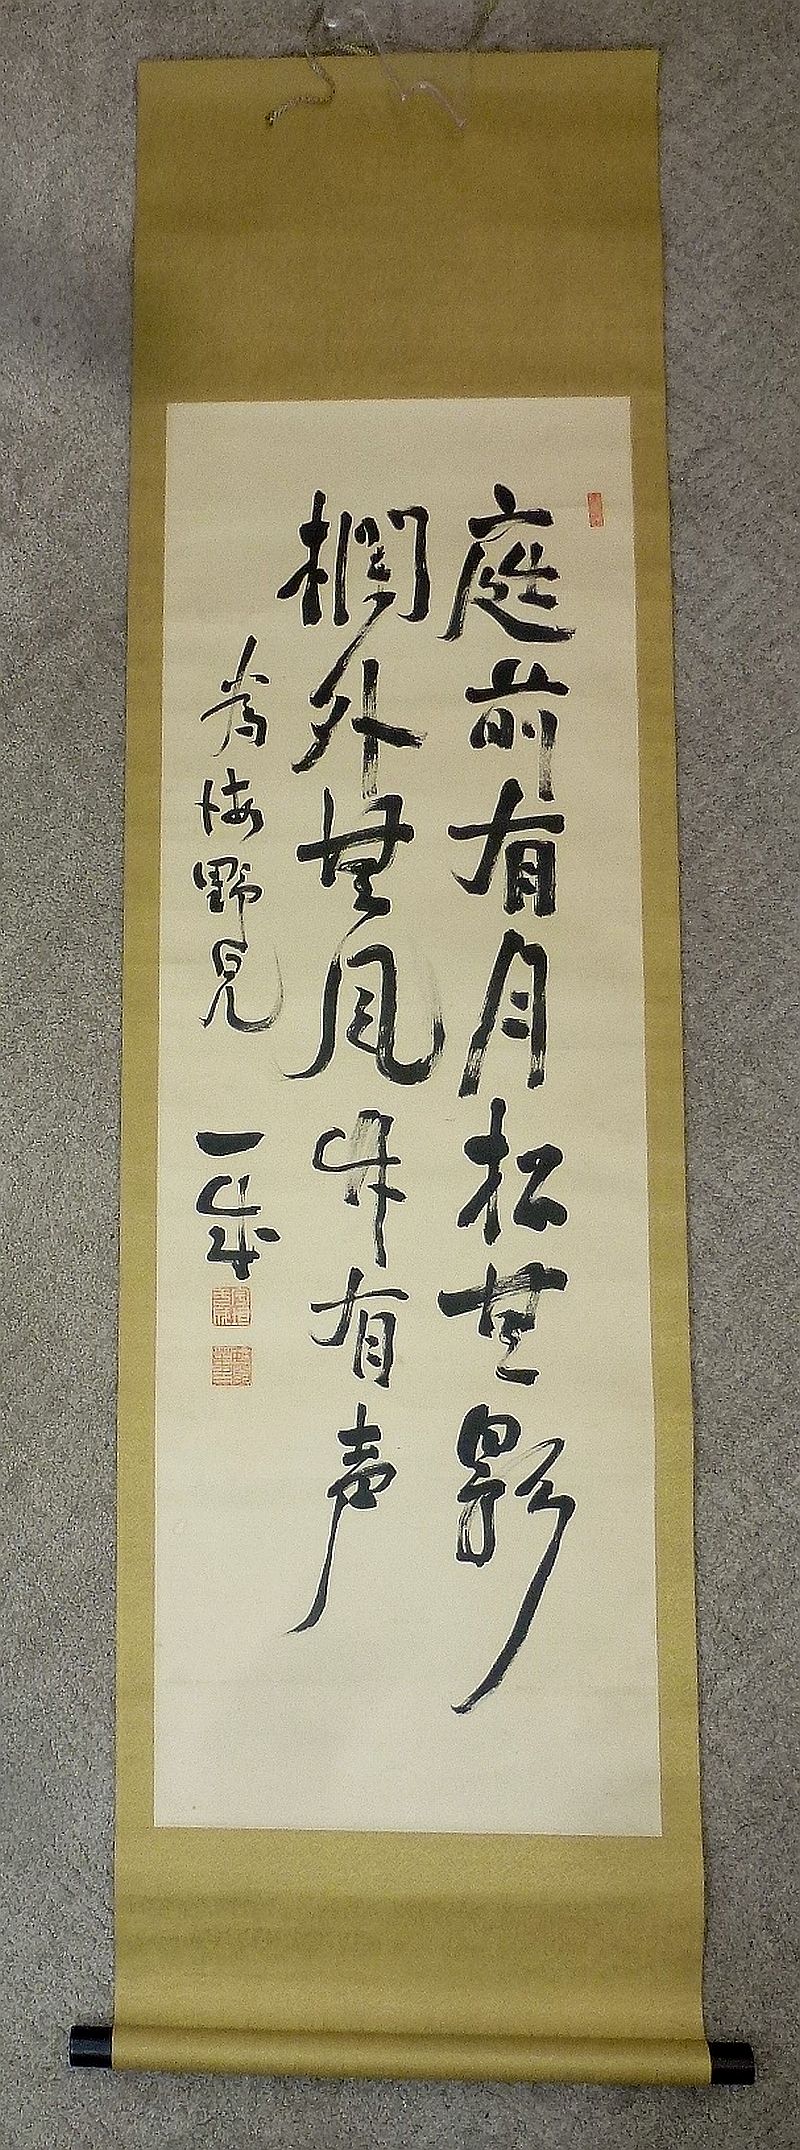 庭前有月松無影
欄外無風竹有声
為海野兄
一成